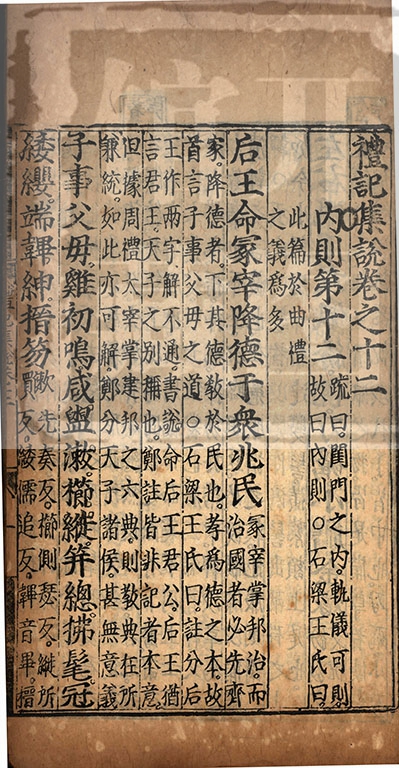 禮記集說卷之十二
內則第十二
疏曰閨門之內軌儀可則
故曰內則○石梁王氏曰
此篇於曲禮
之義爲多
后王命冢宰降德于衆兆民
冢宰掌邦治而
治國者必先齊
家降德者下其德敎於民也孝爲德之本故
首言子事父母之道○石梁王氏曰註分后
王作两字解不通書說命后王君公后王猶
言君王天子之別稱也鄭註皆非記者本意
但據周禮大宰掌建邦之六典則敎典在所
兼統如此亦可解鄭分天子諸侯甚無意義
子事父母雞初鳴咸盥漱櫛縰笄總拂髦冠
緌纓端韠紳搢笏
漱先奏反櫛側瑟反縰所
買反緌儒追反韠音畢搢